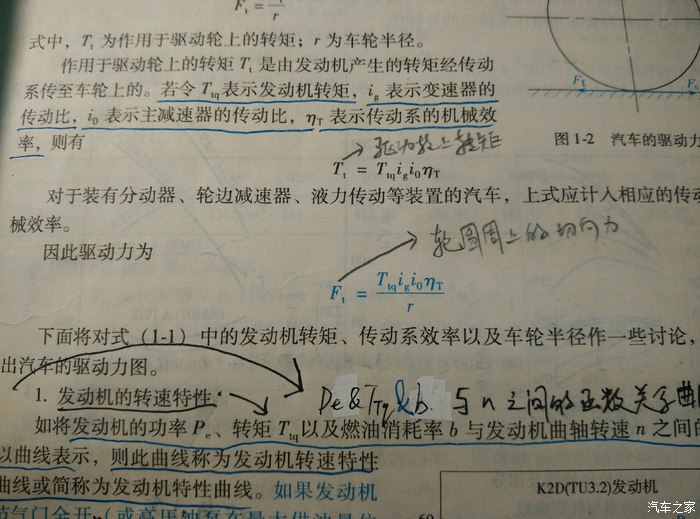 Fₜ = Tₜ/r
式中，Tₜ 为作用于驱动轮上的转矩；r 为车轮半径。
作用于驱动轮上的转矩 Tₜ 是由发动机产生的转矩经传动
系传至车轮上的。若令 Ttq 表示发动机转矩，ig 表示变速器的
传动比，i0 表示主减速器的传动比，ηT 表示传动系的机械效
率，则有
驱动轮上转矩
Tt = Ttq ig i0 ηT
Ft
图 1-2 汽车的驱动力
对于装有分动器、轮边减速器、液力传动等装置的汽车，上式应计入相应的传动
械效率。
轮圆周上的切向力
因此驱动力为
Ft = Ttq ig i0 ηT / r
下面将对式（1-1）中的发动机转矩、传动系效率以及车轮半径作一些讨论，
出汽车的驱动力图。
1. 发动机的转速特性
Pe & Ttq & b 与 n 之间的函数关系曲
如将发动机的功率 Pe、转矩 Ttq 以及燃油消耗率 b 与发动机曲轴转速 n 之间的
以曲线表示，则此曲线称为发动机转速特性
曲线或简称为发动机特性曲线。如果发动机
节气门全开（或高压油泵在最大供油量位
K2D(TU3.2)发动机
60
汽车之家